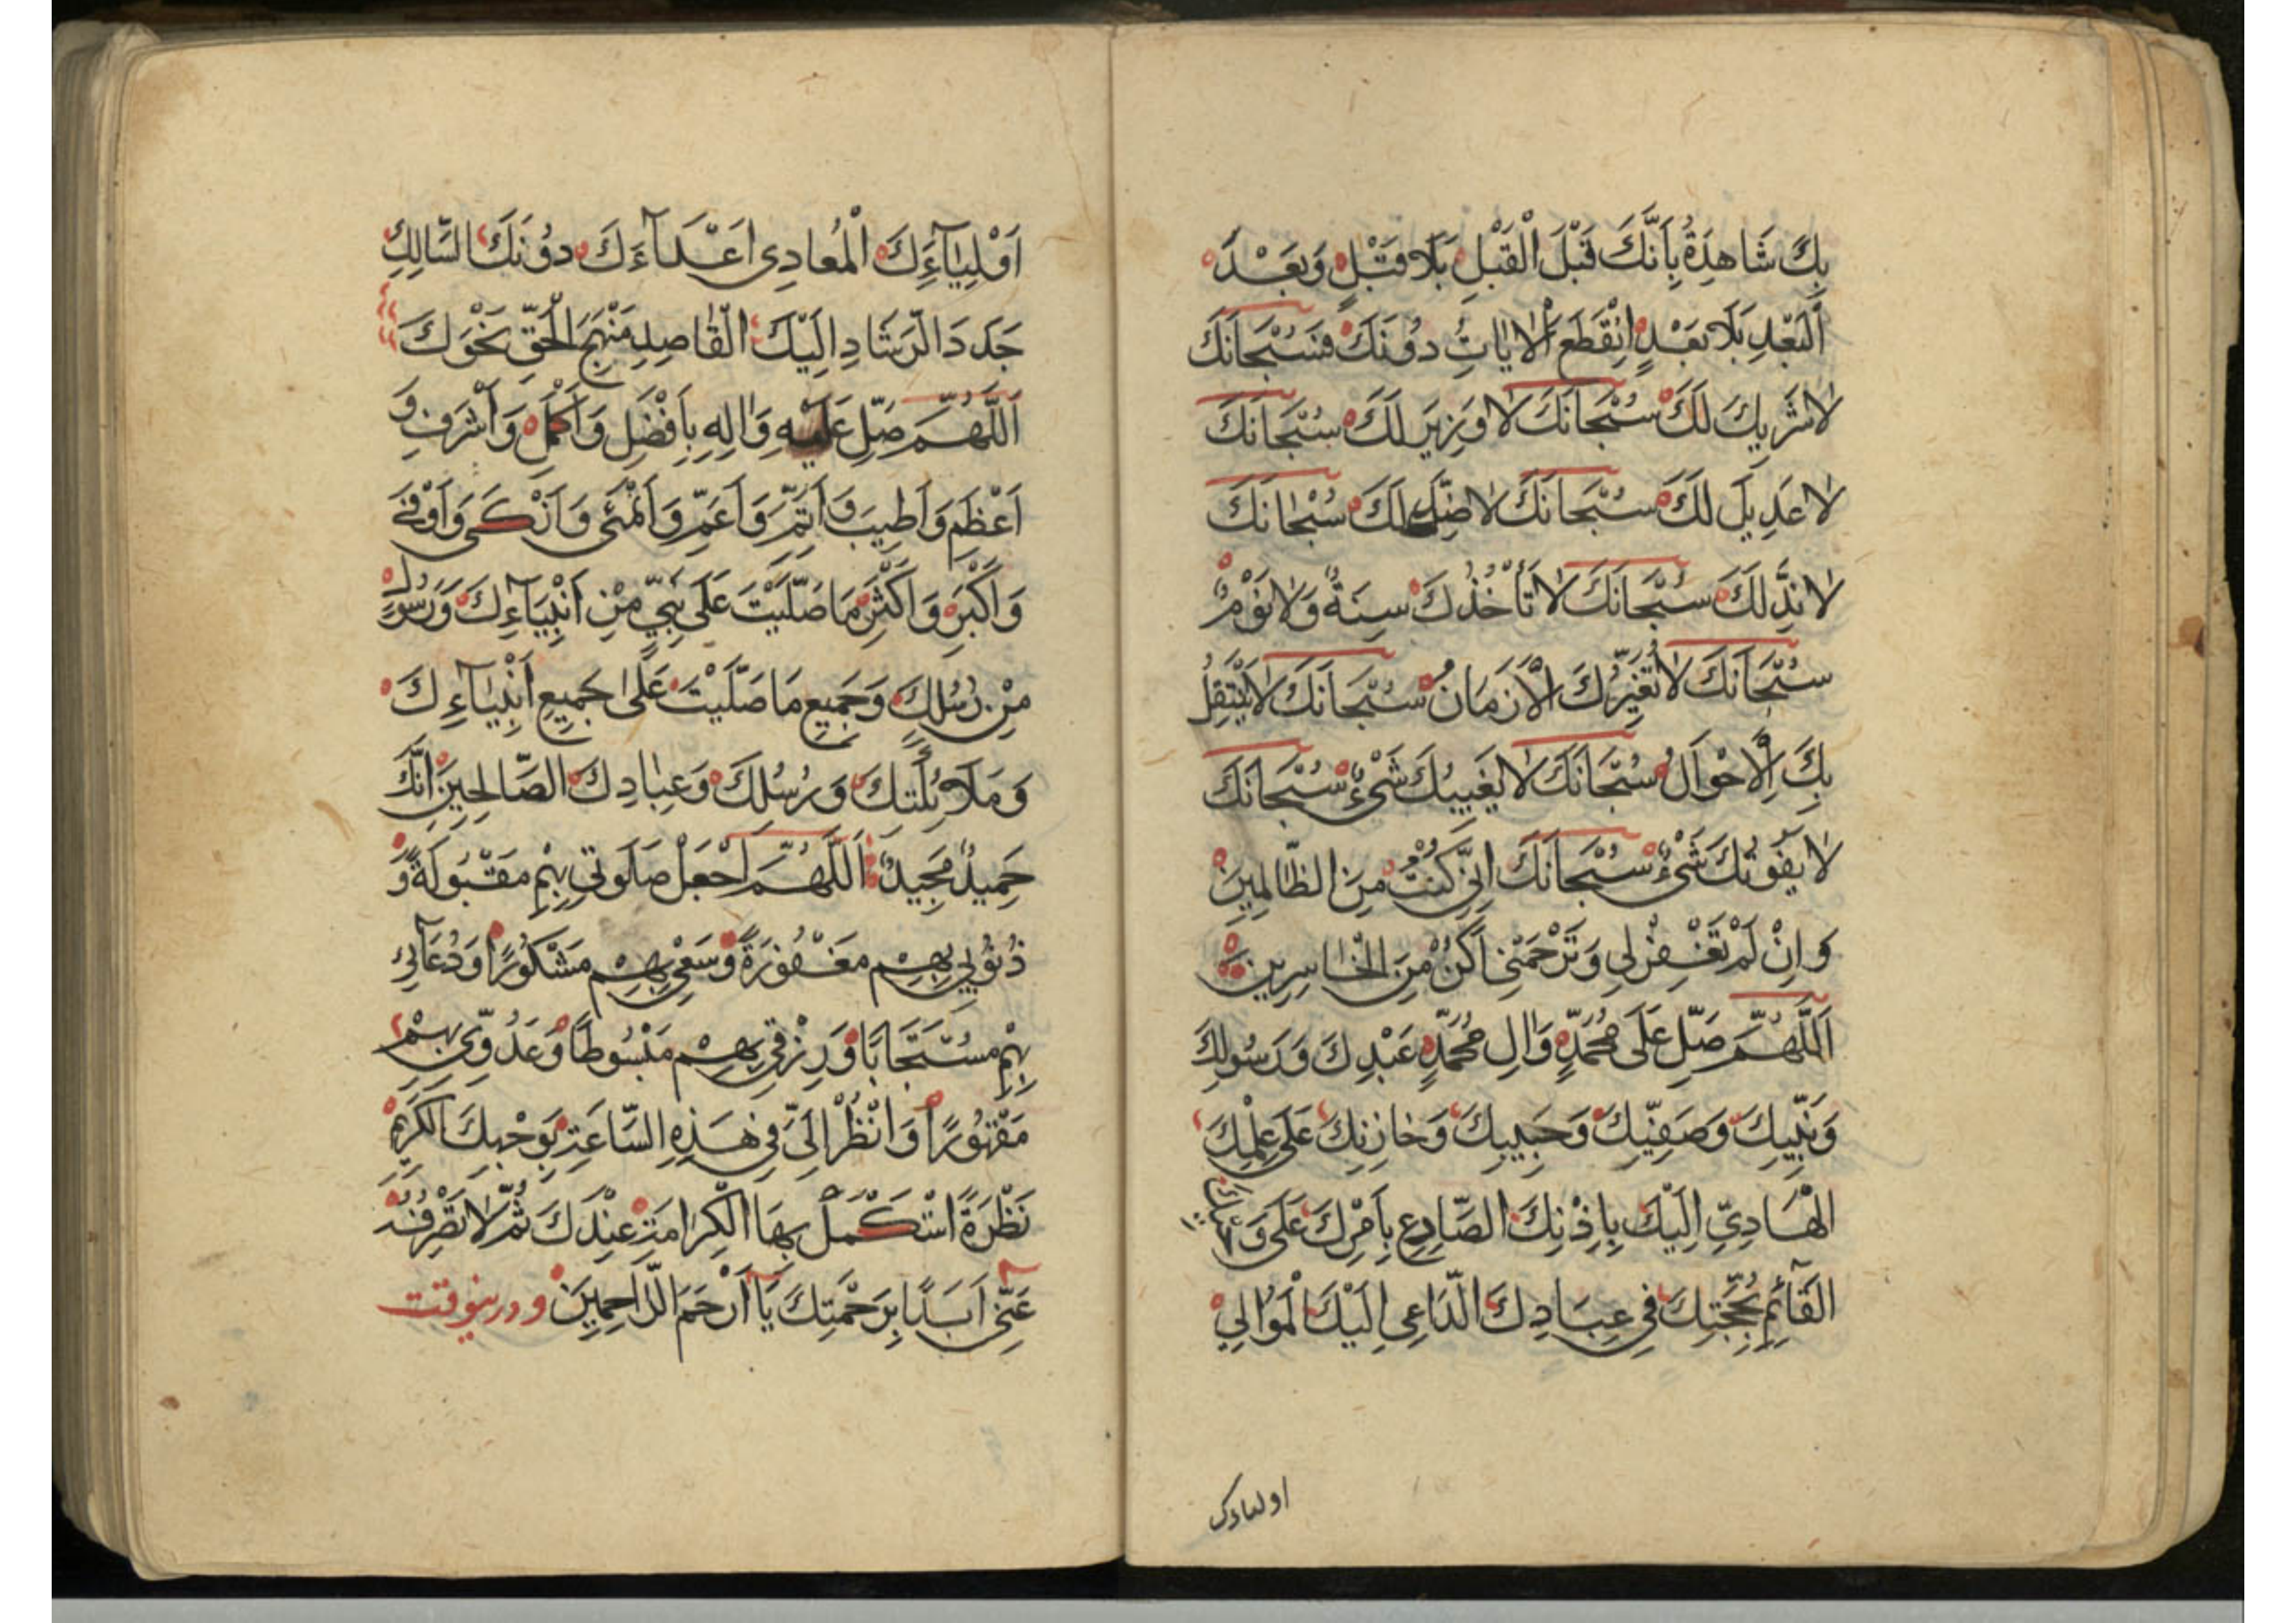 بِكَ شَاهِدَةٌ بِاَنَّكَ قَبْلَ الْقَبْلِ بِلَا قَبْلٍ وَبَعْدَ
اَلْبَعْدِ بِلَا بَعْدٍ اِنْقَطَعَ الْاٰيَاتُ دُوْنَكَ فَسُبْحَانَكَ
لَا شَرِيكَ لَكَ سُبْحَانَكَ لَا وَزِيرَ لَكَ سُبْحَانَكَ
لَا عَدِيلَ لَكَ سُبْحَانَكَ لَا ضِدَّ لَكَ سُبْحَانَكَ
لَا نِدَّ لَكَ سُبْحَانَكَ لَا تَأْخُذُكَ سِنَةٌ وَلَا نَوْمٌ
سُبْحَانَكَ لَا تُغَيِّرُكَ الْاَزْمَانُ سُبْحَانَكَ لَا يَنْتَقِلُ
بِكَ الْاَحْوَالُ سُبْحَانَكَ لَا يُعْيِيكَ شَىْءٌ سُبْحَانَكَ
لَا يَفُوتُكَ شَىْءٌ سُبْحَانَكَ اِنِّى كُنْتُ مِنَ الظَّالِمِينَ
وَ اِنْ لَمْ تَغْفِرْ لِى وَتَرْحَمْنِى اَكُنْ مِنَ الْخَاسِرِينَ
اَللّٰهُمَّ صَلِّ عَلَى مُحَمَّدٍ وَاٰلِ مُحَمَّدٍ عَبْدِكَ وَرَسُولِكَ
وَنَبِيِّكَ وَصَفِيِّكَ وَحَبِيبِكَ وَخَازِنِكَ عَلَى عِلْمِكَ
الْهَادِيِّ اِلَيْكَ بِاِذْنِكَ الصَّادِعِ بِاَمْرِكَ عَلَى وَ
الْقَآئِمِ بِحُجَّتِكَ فِى عِبَادِكَ الدَّاعِى اِلَيْكَ الْمُوَالِي
اولیاءک
اَوْلِيَآءَكَ الْمُعَادِى اَعْدَآءَكَ دُوْنَكَ السَّالِكِ
جَدَدَ الرَّشَادِ اِلَيْكَ الْقَاصِدِ مَنْهَجَ الْحَقِّ نَحْوَكَ
اَللّٰهُمَّ صَلِّ عَلَيْهِ وَاٰلِهِ بِاَفْضَلِ وَاَكْمَلِ وَاَشْرَفِ وَ
اَعْظَمِ وَاَطْيَبِ وَاَتَمِّ وَاَعَمِّ وَاَنْمَى وَاَزْكَى وَاَوْفَى
وَاَكْبَرِ وَاَكْثَرِ مَا صَلَّيْتَ عَلَى نَبِيٍّ مِنْ اَنْبِيَآءِكَ وَرَسُولٍ
مِنْ رُسُلِكَ وَجَمِيعِ مَا صَلَّيْتَ عَلَى جَمِيعِ اَنْبِيَآءِكَ
وَمَلَآئِكَتِكَ وَرُسُلِكَ وَعِبَادِكَ الصَّالِحِينَ اِنَّكَ
حَمِيدٌ مَجِيدٌ اَللّٰهُمَّ اجْعَلْ صَلَوتِى بِهِمْ مَقْبُولَةً وَ
ذُنُوبِى بِهِمْ مَغْفُورَةً وَسَعْيِى بِهِمْ مَشْكُورًا وَدُعَآئِى
بِهِمْ مُسْتَجَابًا وَرِزْقِى بِهِمْ مَبْسُوطًا وَعَدُوِّى بِهِمْ
مَقْهُورًا وَانْظُرْ اِلَىَّ فِى هَذِهِ السَّاعَةِ بِوَجْهِكَ الْكَرِيمِ
نَظْرَةً اَسْتَكْمِلُ بِهَا الْكَرَامَةَ عِنْدَكَ ثُمَّ لَا تَصْرِفْهُ
عَنِّى اَبَدًا بِرَحْمَتِكَ يَا اَرْحَمَ الرَّاحِمِينَ و درینوقت